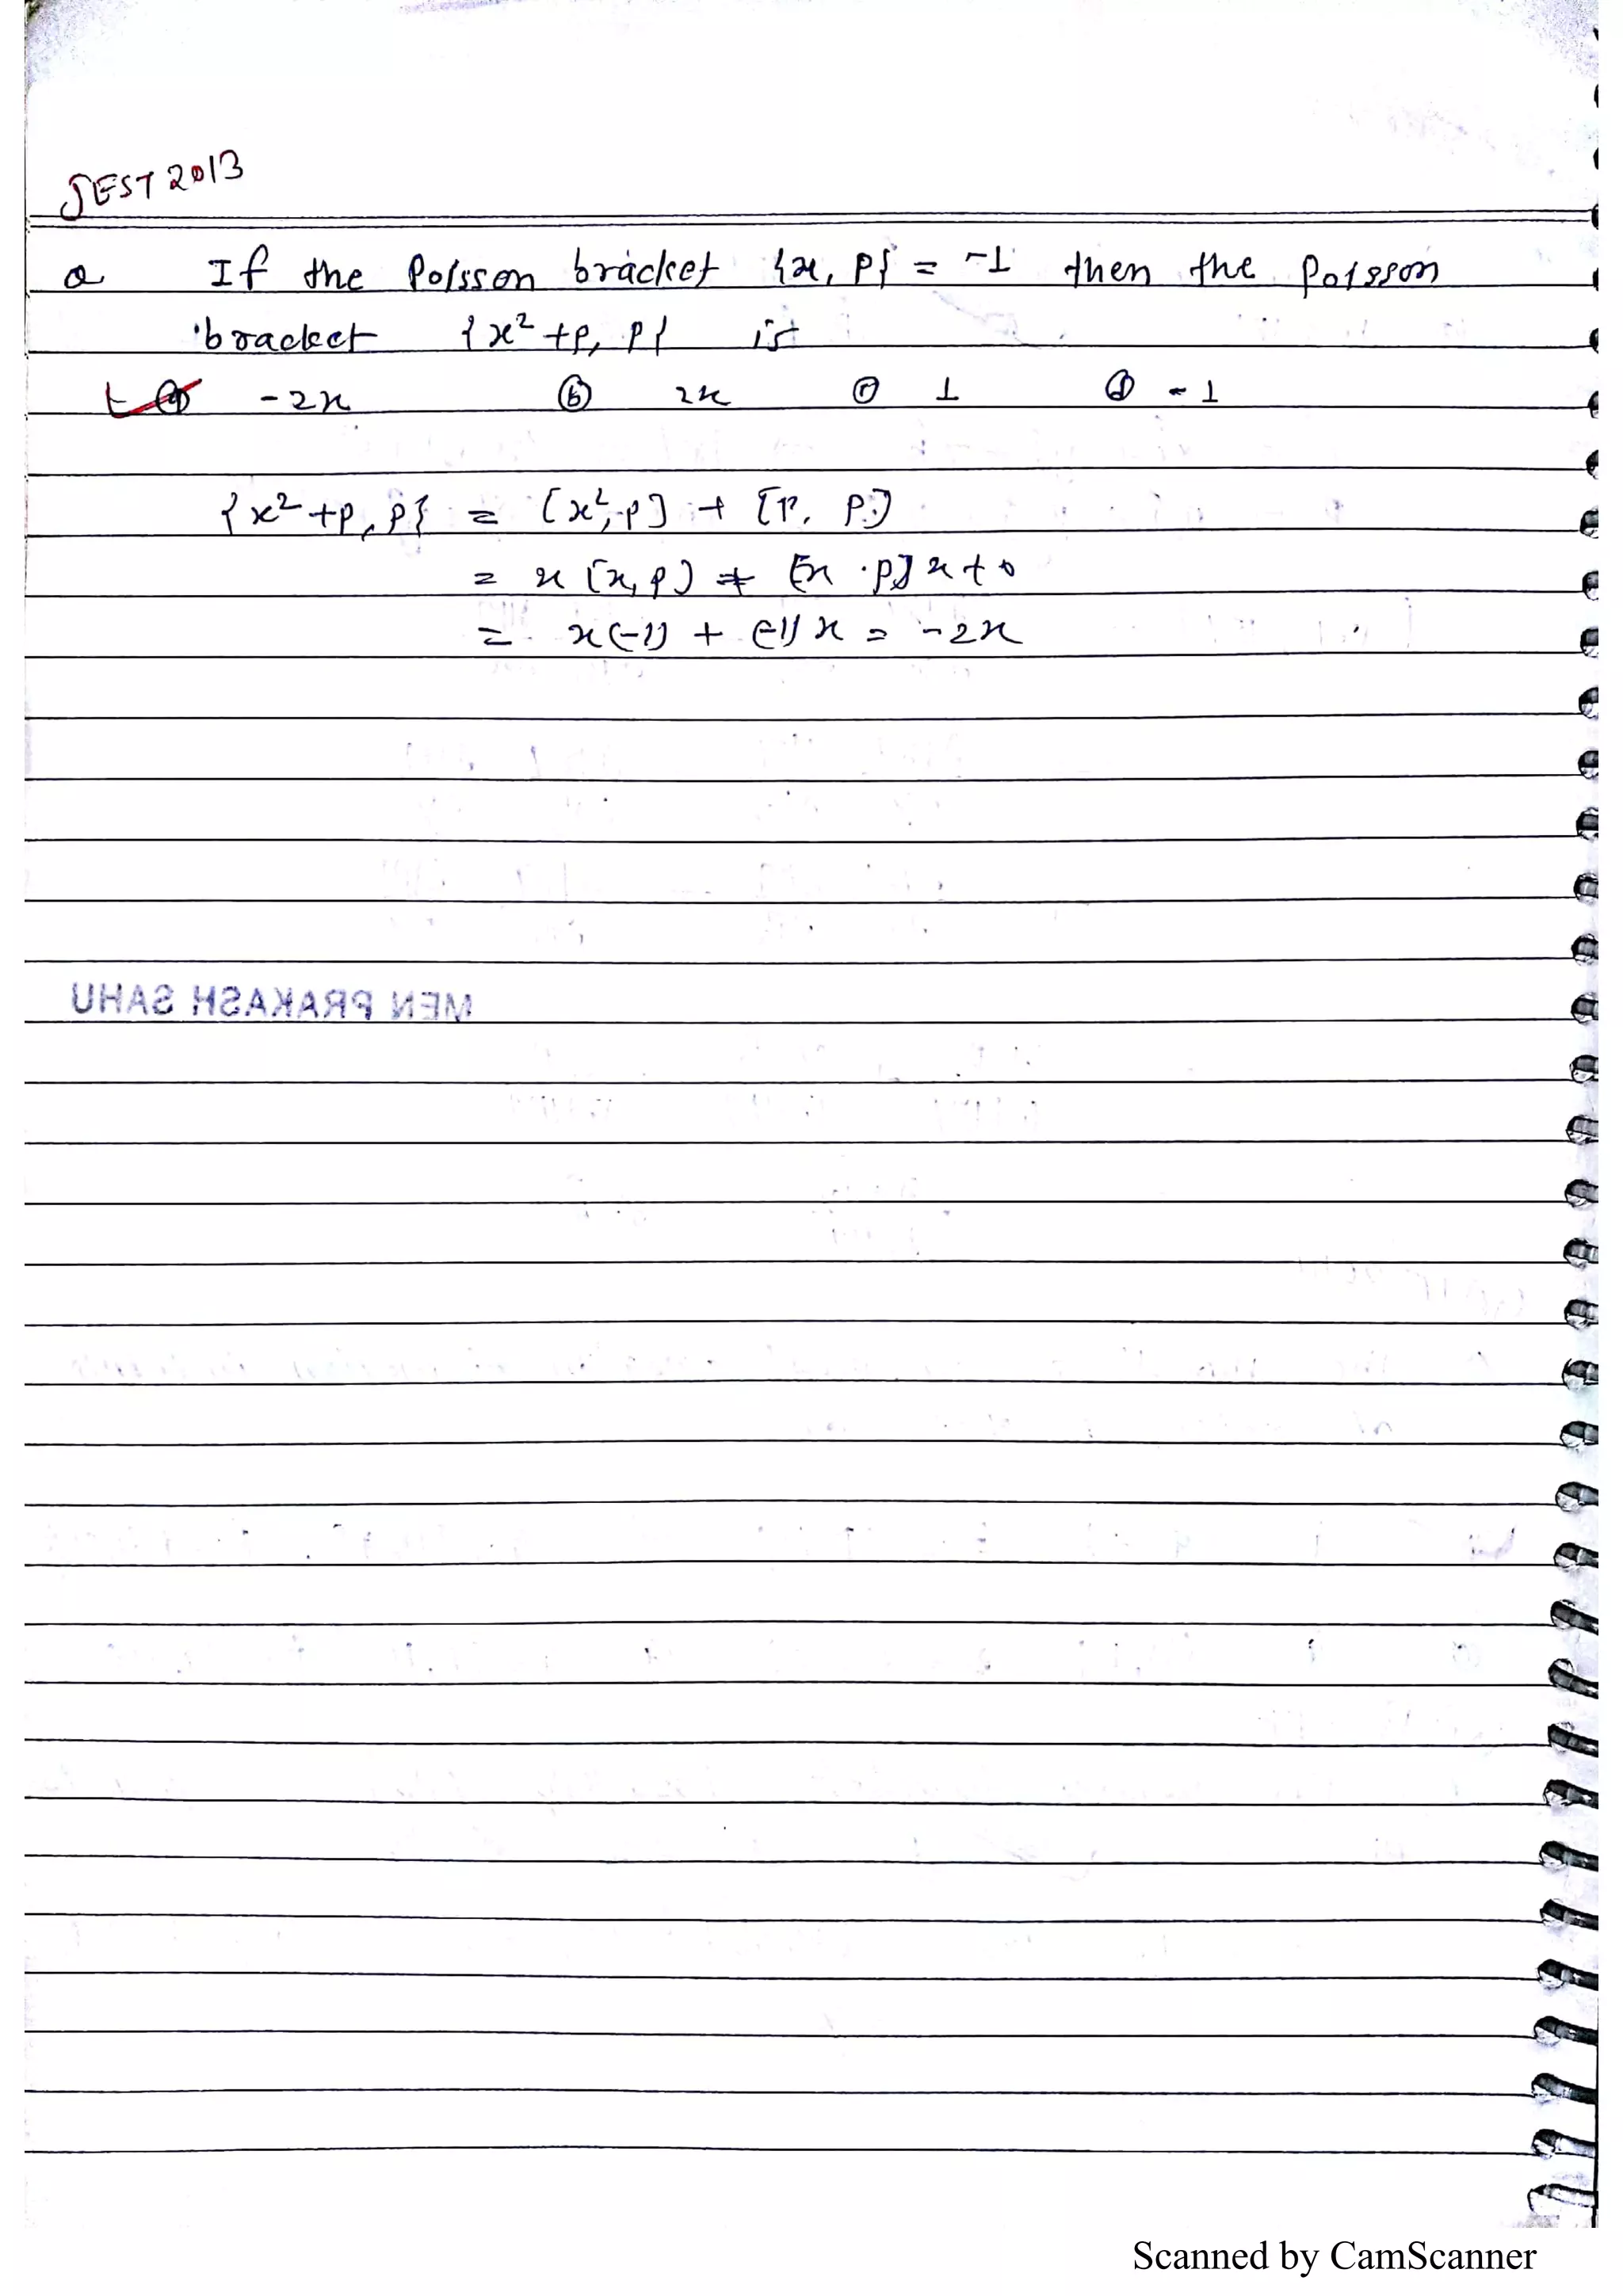 JEST 2013
Q If the Poisson bracket {x, p} = -1 then the Poisson
bracket {x² + p, p} is
(a) -2x (b) 2x (c) 1 (d) -1
{x² + p, p} = [x², p] + [p, p]
= x [x, p] + [x, p] x + 0
= x(-1) + (-1) x = -2x
MEN PRAKASH SAHU
Scanned by CamScanner